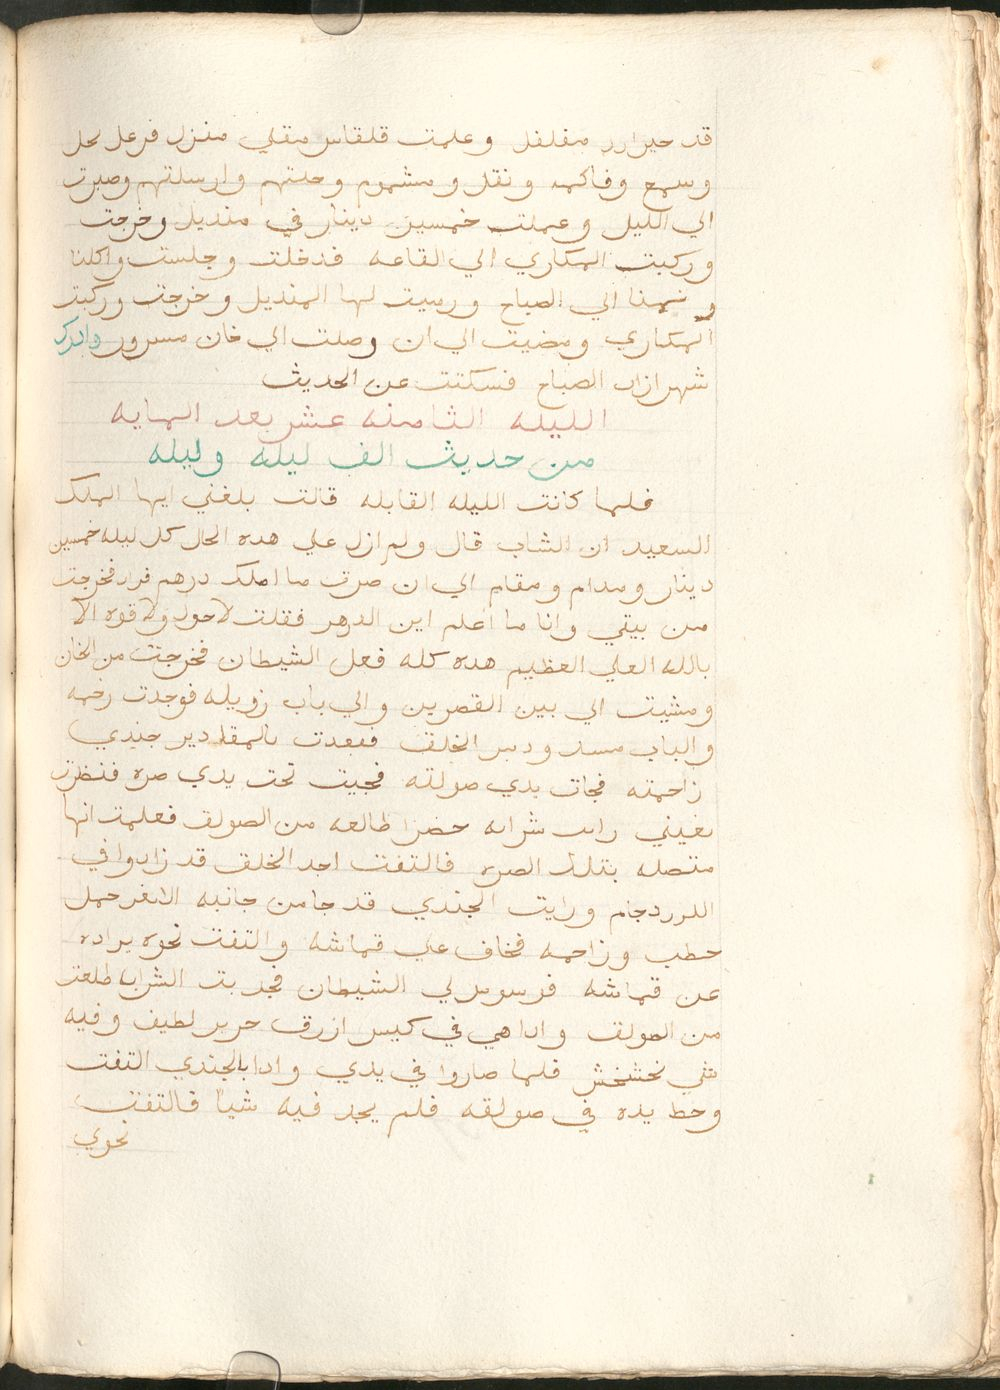 قد حيرارر مفلفل وعلمت قلقاس مقلي منزل فرعل نحل
وسمع وفاكهه ونقل ومشموم وحلتهم وارسلتهم وصبرت
الي الليل وعملت خمسين دينار في منديل وخرجت
وركبت المكاري الي القاعه فدخلت وجلست واكلنا
ونمنا الي الصباح ورميت لها المنديل وخرجت وركبت
المكاري ومضيت الي ان وصلت الي خان مسرور وادرك
شهرازاد الصباح فسكتت عن الحديث
الليله الثامنه عشر بعد المايه
من حديث الف ليله وليله
فلما كانت الليله القابله قالت بلغني ايها الملك
السعيد ان الشاب قال ولم ازل علي هده الحال كل ليله خمسين
دينار ومدام ومقام الي ان صرت ما املك درهم فرد فخرجت
من بيتي وانا ما اعلم اين الدهر فقلت لاحول ولاقوه الا
بالله العلي العظيم هده كله فعل الشيطان فخرجت من الخان
ومشيت الي بين القصرين والي باب زويله فوجدت زخمه
والباب مسد ودمن الخلق فقعدت بالمقادير جندي
زاحمته فجات يدي صولته فجيت تحت يدي صره فنظرت
بعيني رات شرابه خضرا طالعه من الصولق فعلمت انها
متصله بتلك الصره فالتفت اجد الخلق قد زادوا في
اللرردجام ورايت الجندي قد جا من جانبه الاخر حمل
حطب وزاحمه فخاف علي قماشه والتفت نحوه يراده
عن قماشه فوسوس لي الشيطان فجدبت الشرابا طلعت
من الصولق وادا هي في كيس ازرق حرير لطيف وفيه
شي نخشخش فلما صاروا في يدي وادا بالجندي التفت
وحط يده في صولقه فلم يجد فيه شيا فالتفت
نحوي